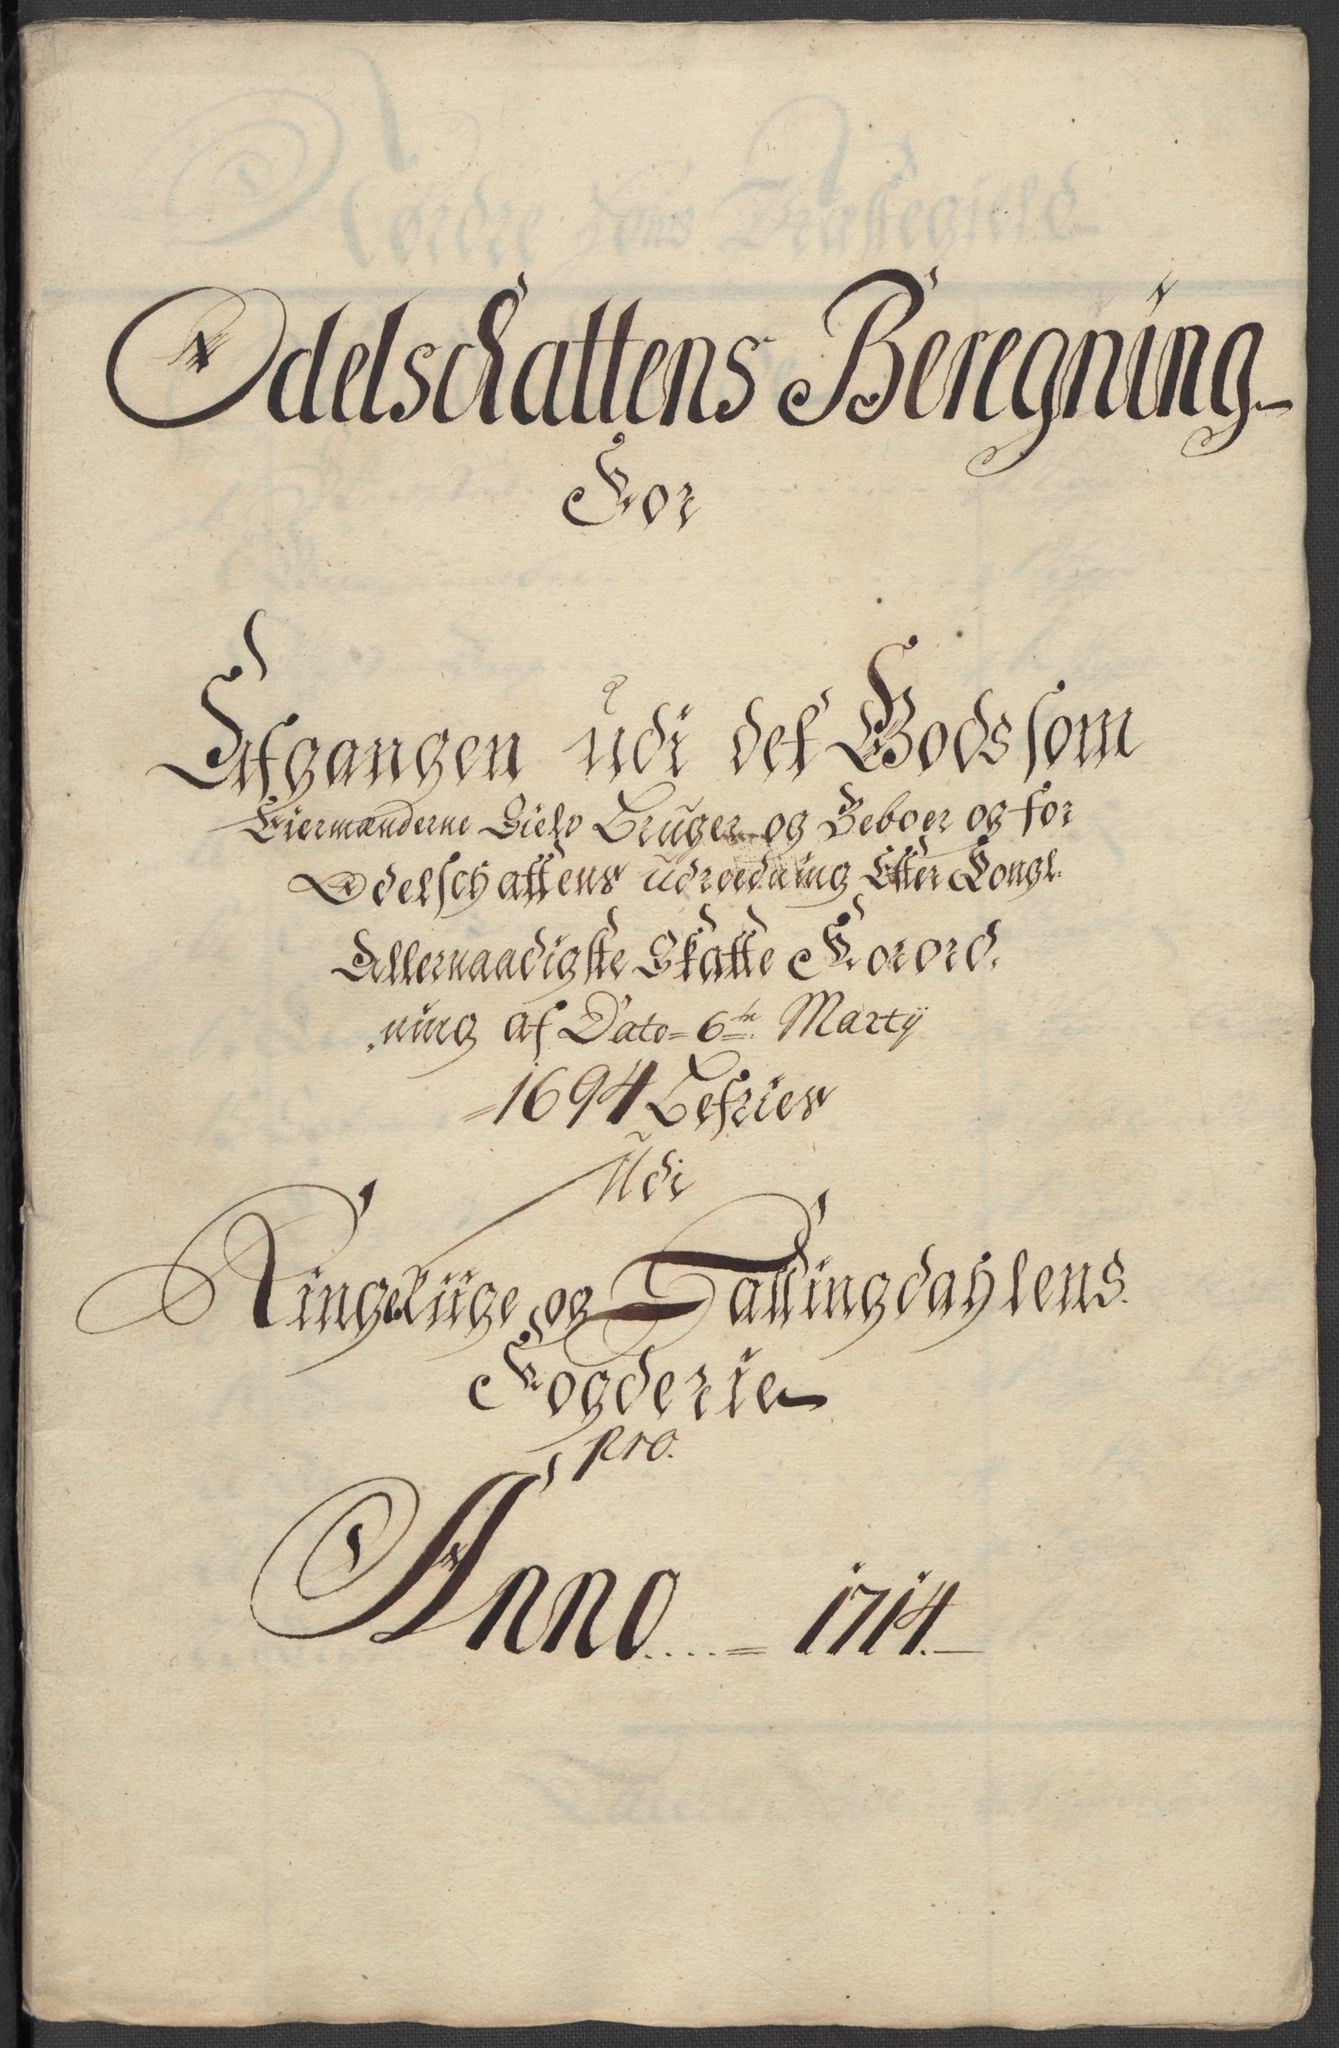 Odelschattens Beregning
For
Afgangen udi det Gods som
Eiermænderne Sielv Bruger og Beboer og for
Odelschattens udredning Efter Kongl.
Allernaadigste Skatte Forord-
ning af Dato 6te Martij
1694 Befries
Udi
Ringeriige og Hallingdahlens
Fogderie
pro.
Anno 1714.